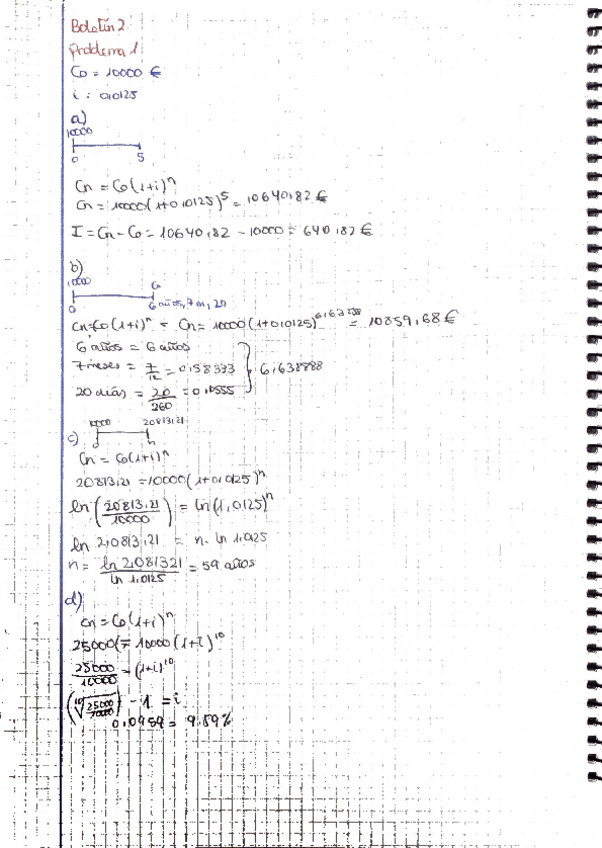 Boletín 2:
Problema 1
Co = 10000 €
i : 0,0125
a)
10000
0 5
Cn = Co(1+i)^n
Cn = 10000(1+0,0125)^5 = 10640,82 €
I = Cn - Co = 10640,82 - 10000 = 640,82 €
b)
10000
0 6 años, 7 m, 20
Cn=Co(1+i)^n = Cn = 10000(1+0,0125) = 10859,68 €
6 años = 6 años
7 meses = 7/12 = 0,58333 } 6,638888
20 días = 20/360 = 0,0555
c) 10000 20813,21
0 n
Cn = Co(1+i)^n
20813,21 = 10000(1+0,0125)^n
ln(20813,21/10000) = ln(1,0125)^n
ln 2,0813,21 = n. ln 1,0125
n = ln 2,081321/ln 1,0125 = 59 años
d)
Cn = Co(1+i)^n
25000 = 10000(1+i)^10
25000/10000 = (1+i)^10
- 1 = i
0,0959 = 9,59%